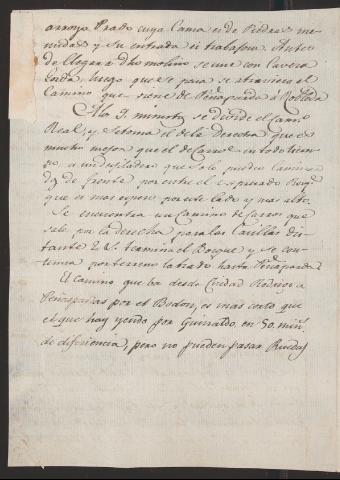 arroyo Prado cuya Cama es de Piedras me
nudas y su entrada es trabajosa. Antes
de llegar a dho molino se une con la vera
luego que se pasa se atraviesa el
Camino que viene de Peñaparda á Robleda
A los 9. minutos se divide el Camº
Real, y se toma el de la Derecha que es
mucho mejor que el de Carros en todo tiem
po a un desfiladero que solo pueden caminar
de frente por entre el espesado Bosqe
que es mas espeso por este lado y mas alto.
Se encuentra un Camino de Carros que
sale por la derecha para las Casillas dis
tante 2 L. termina el Bosque y se con
tinua por terreno labrado hasta Peñaparda
El camino que ba desde Ciudad Rodrigo a
Peñapardas por el Bodon, es mas corto que
el que hay yendo por Guinaldo en 50. minˢ
de diferiencia, pero no pueden pasar Ruedas